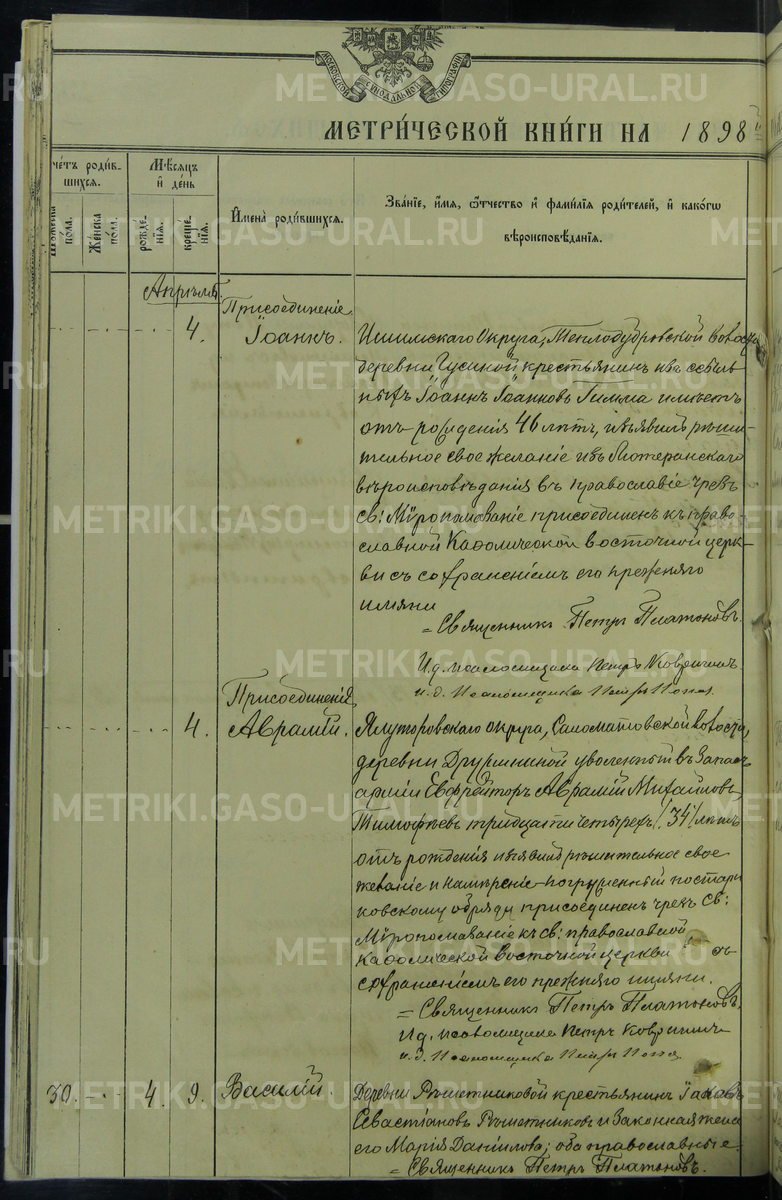 МОСКОВСКОЙ СѴНОДАЛЬНОЙ ТИПОГРАФІИ
МЕТРИ́ЧЕСКОЙ КНИ́ГИ НА 1898
счетъ роди́в-
шихся.
Мѣ́сяцъ
и҆ де́нь
И҆мена̀ роди́вшихся.
Зва́нїе, и҆́мя, ѻ҆́тчество и҆ фами́лїя роди́телей, и҆ како́гѡ
вѣроисповѣ́данїя.
Мужеска
по́ла.
Же́нска
по́ла.
рожде́-
нїя.
креще́-
нїя.
Апрѣль
Присоединеніе
4. Іоаннъ.
Ишимскаго Округа, Теплодубровской волости
деревни Гусиной крестьянинъ изъ ссыль
ныхъ Іоаннъ Іоанновъ Гимма имѣетъ
отъ рожденія 46 лѣтъ, изъявилъ рѣши-
тельное свое желаніе изъ Лютеранскаго
вѣроисповѣданія въ православіе чрезъ
св: Мѵропомазаніе присоединенъ къ право-
славной Каѳолической восточной церк-
ви съ сохраненіемъ его прежняго
имяни
= Священникъ Петръ Платоновъ.
И.д. псаломщика Петръ Ковригинъ
и.д. Псаломщика Петръ Попов
Присоединенія
4. Аврамій.
Ялуторовскаго округа, Саломатовской волости,
деревни Дружининой уволенный въ Запасъ
арміи Ефрейторъ Аврамій Михайловъ
Тимофеевъ тридцати четырехъ /34/ лѣтъ
отъ рожденія изъявилъ рѣшительное свое
желаніе и намѣреніе погруженный по стари
ковскому обряду присоединенъ чрезъ Св:
Мѵропомазаніе къ св: православной,
каѳолической Восточной церкви съ
сохраненіемъ его прежняго имяни.
= Священникъ Петръ Платоновъ.
И.д. псаломщика Петръ Ковригинъ
и.д. Псаломщика Петръ Попов
30. 4. 9. Василій.
Деревни Рѣшетниковой крестьянинъ Іаковъ
Севастіановъ Рѣшетниковъ и Законная жена
его Марія Даніилова; оба православные
= Священникъ Петръ Платоновъ.
METRIKI.GASO-URAL.RU